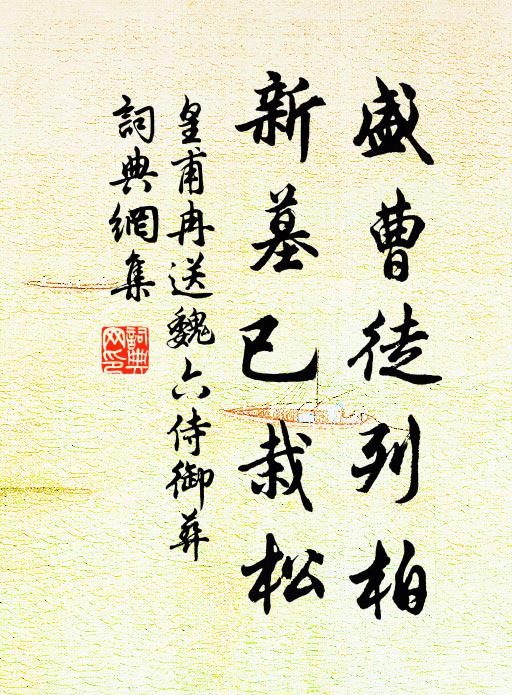 盛曹徒列柏
新墓已栽松
皇甫冉送魏六侍御葬
詞典網集
詞典
网印